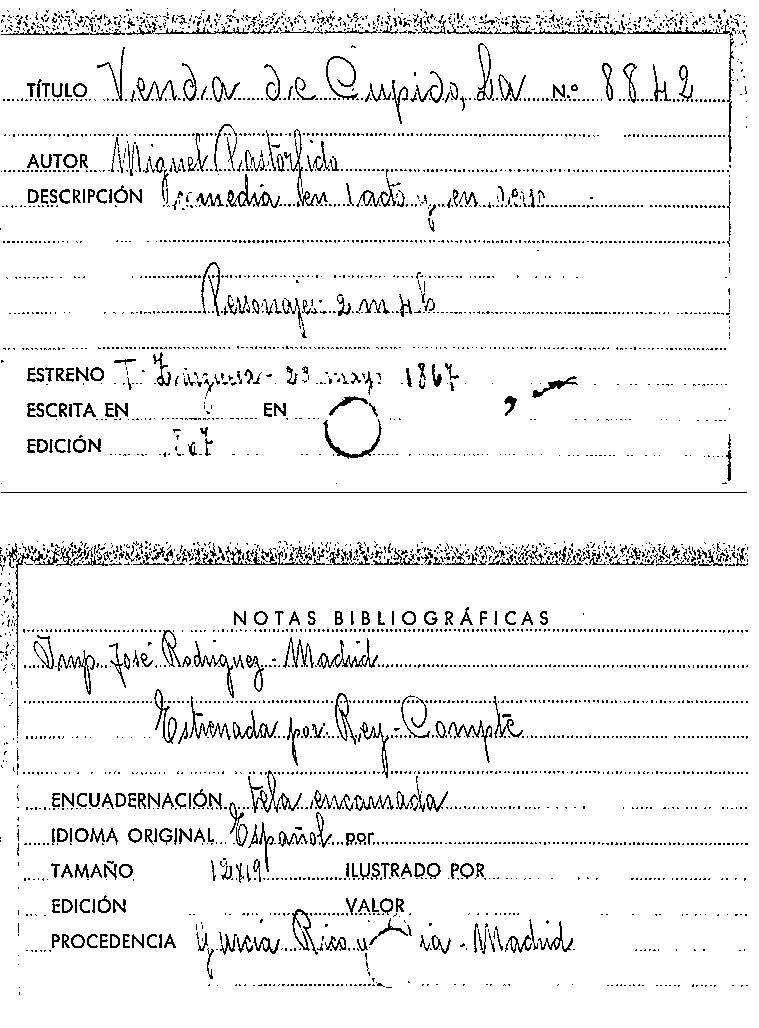 TÍTULO Venda de Cupido, La N.º 8842
AUTOR Miguel Pastorfido
DESCRIPCIÓN Comedia en 1 acto y en verso
Personajes: 2 m 4 h
ESTRENO T. Zarzuela - 23 mayo 1867
ESCRITA EN EN
EDICIÓN
NOTAS BIBLIOGRÁFICAS
Imp. José Rodriguez - Madrid
Estrenada por: Rey - Compte
ENCUADERNACIÓN tela encarnada
IDIOMA ORIGINAL Español por
TAMAÑO 12x19 ILUSTRADO POR
EDICIÓN VALOR
PROCEDENCIA Garcia Rico y Cia - Madrid